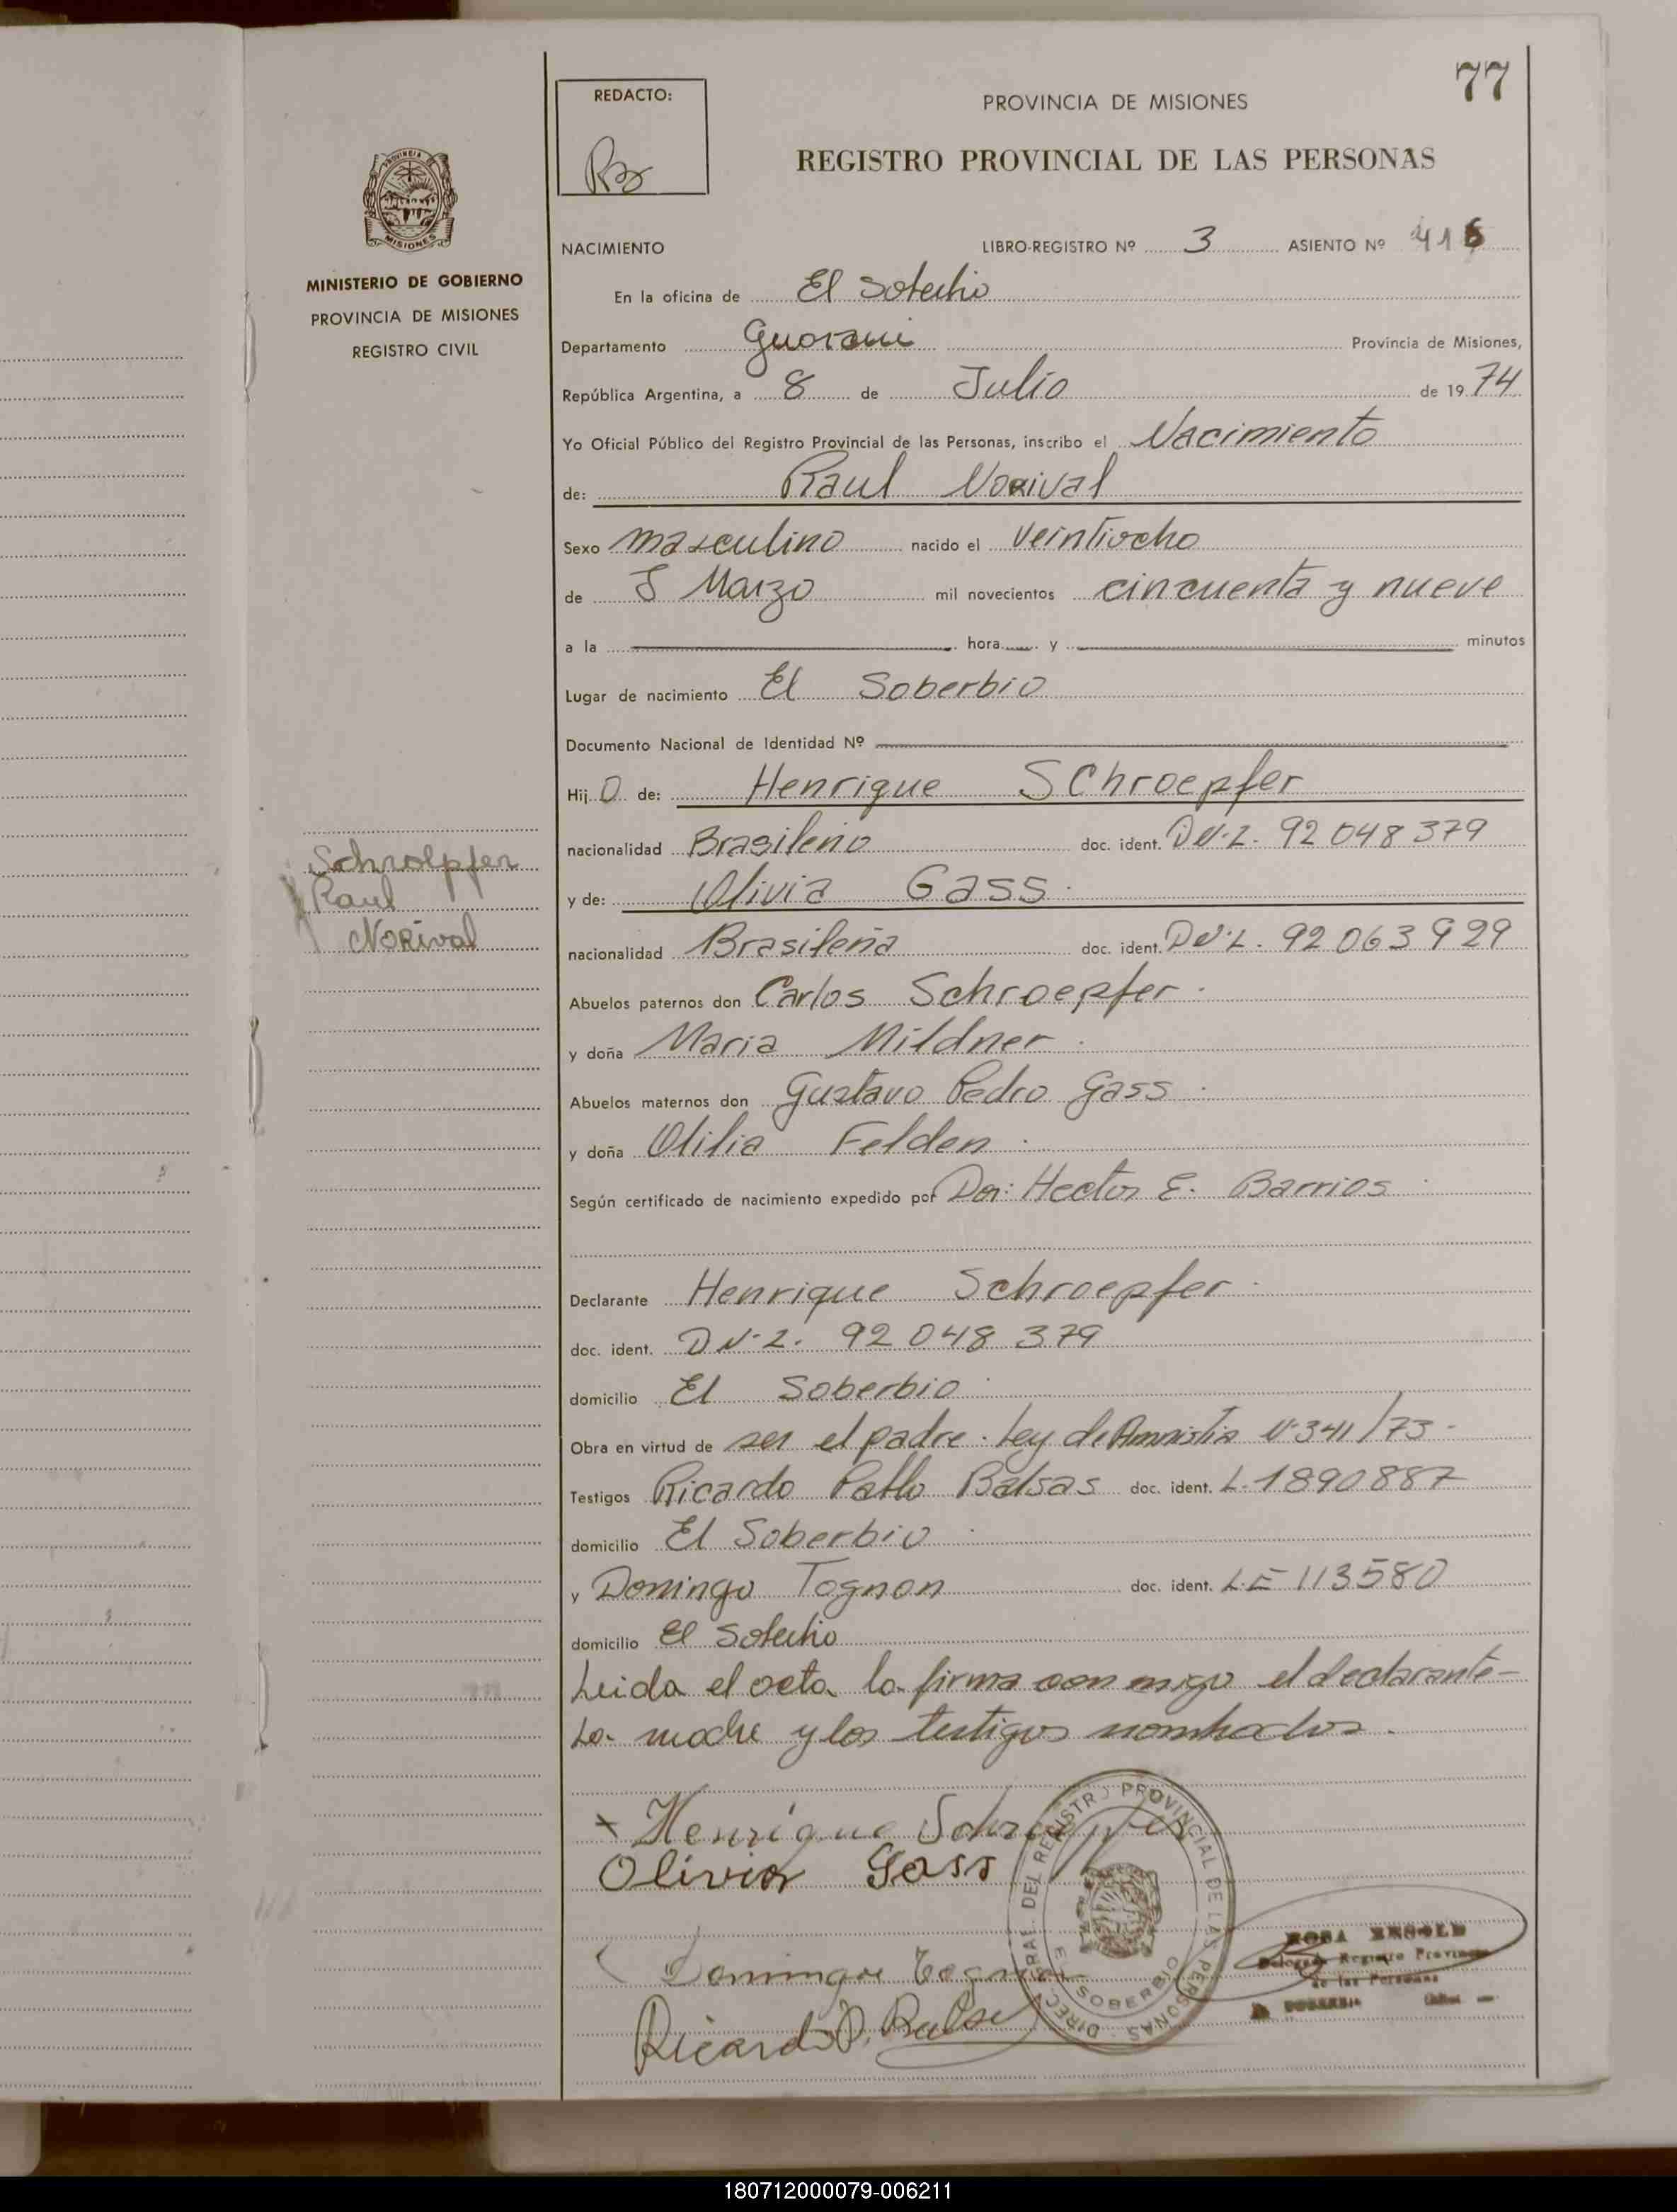 77
REDACTO:
PROVINCIA DE MISIONES
REGISTRO PROVINCIAL DE LAS PERSONAS
PROVINCIA DE
MISIONES
MINISTERIO DE GOBIERNO
PROVINCIA DE MISIONES
REGISTRO CIVIL
NACIMIENTO LIBRO-REGISTRO Nº 3 ASIENTO Nº 416
En la oficina de El Soberbio
Departamento Guarani Provincia de Misiones,
República Argentina, a 8 de Julio de 1974
Yo Oficial Público del Registro Provincial de las Personas, inscribo el Nacimiento
de: Raul Norival
Sexo masculino nacido el veintiocho
de Marzo mil novecientos cincuenta y nueve
a la hora y minutos
Lugar de nacimiento El Soberbio
Documento Nacional de Identidad Nº
Hijo de: Henrique Schroepfer
nacionalidad Brasileño doc. ident. DN·I. 92 048 379
Schroepfer
Raul
Norival
y de: Olivia Gass.
nacionalidad Brasileña doc. ident. DN·I. 92 063 929
Abuelos paternos don Carlos Schroepfer.
y doña Maria Mildner.
Abuelos maternos don Gustavo Pedro Gass.
y doña Otilia Felden.
Según certificado de nacimiento expedido por Dor: Hector E. Barrios.
Declarante Henrique Schroepfer.
doc. ident. DN·I. 92 048 379
domicilio El Soberbio.
Obra en virtud de ser el padre. Ley de Amnistia Nº 341/73-
Testigos Ricardo Pablo Balsas doc. ident. L-1890887
domicilio El Soberbio.
y Domingo Tognon doc. ident. L.E 113580
domicilio El Soberbio
Leida el acta la firma con migo el declarante-
La madre y los testigos nombrados.
Henrique Schroepfer
Olivia Gass
Domingo Tognon
Ricardo P. Balsa
DIRECC. GRAL. DEL REGISTRO PROVINCIAL DE LAS PERSONAS
EL SOBERBIO
Registro Provincial
de las Personas
180712000079-006211